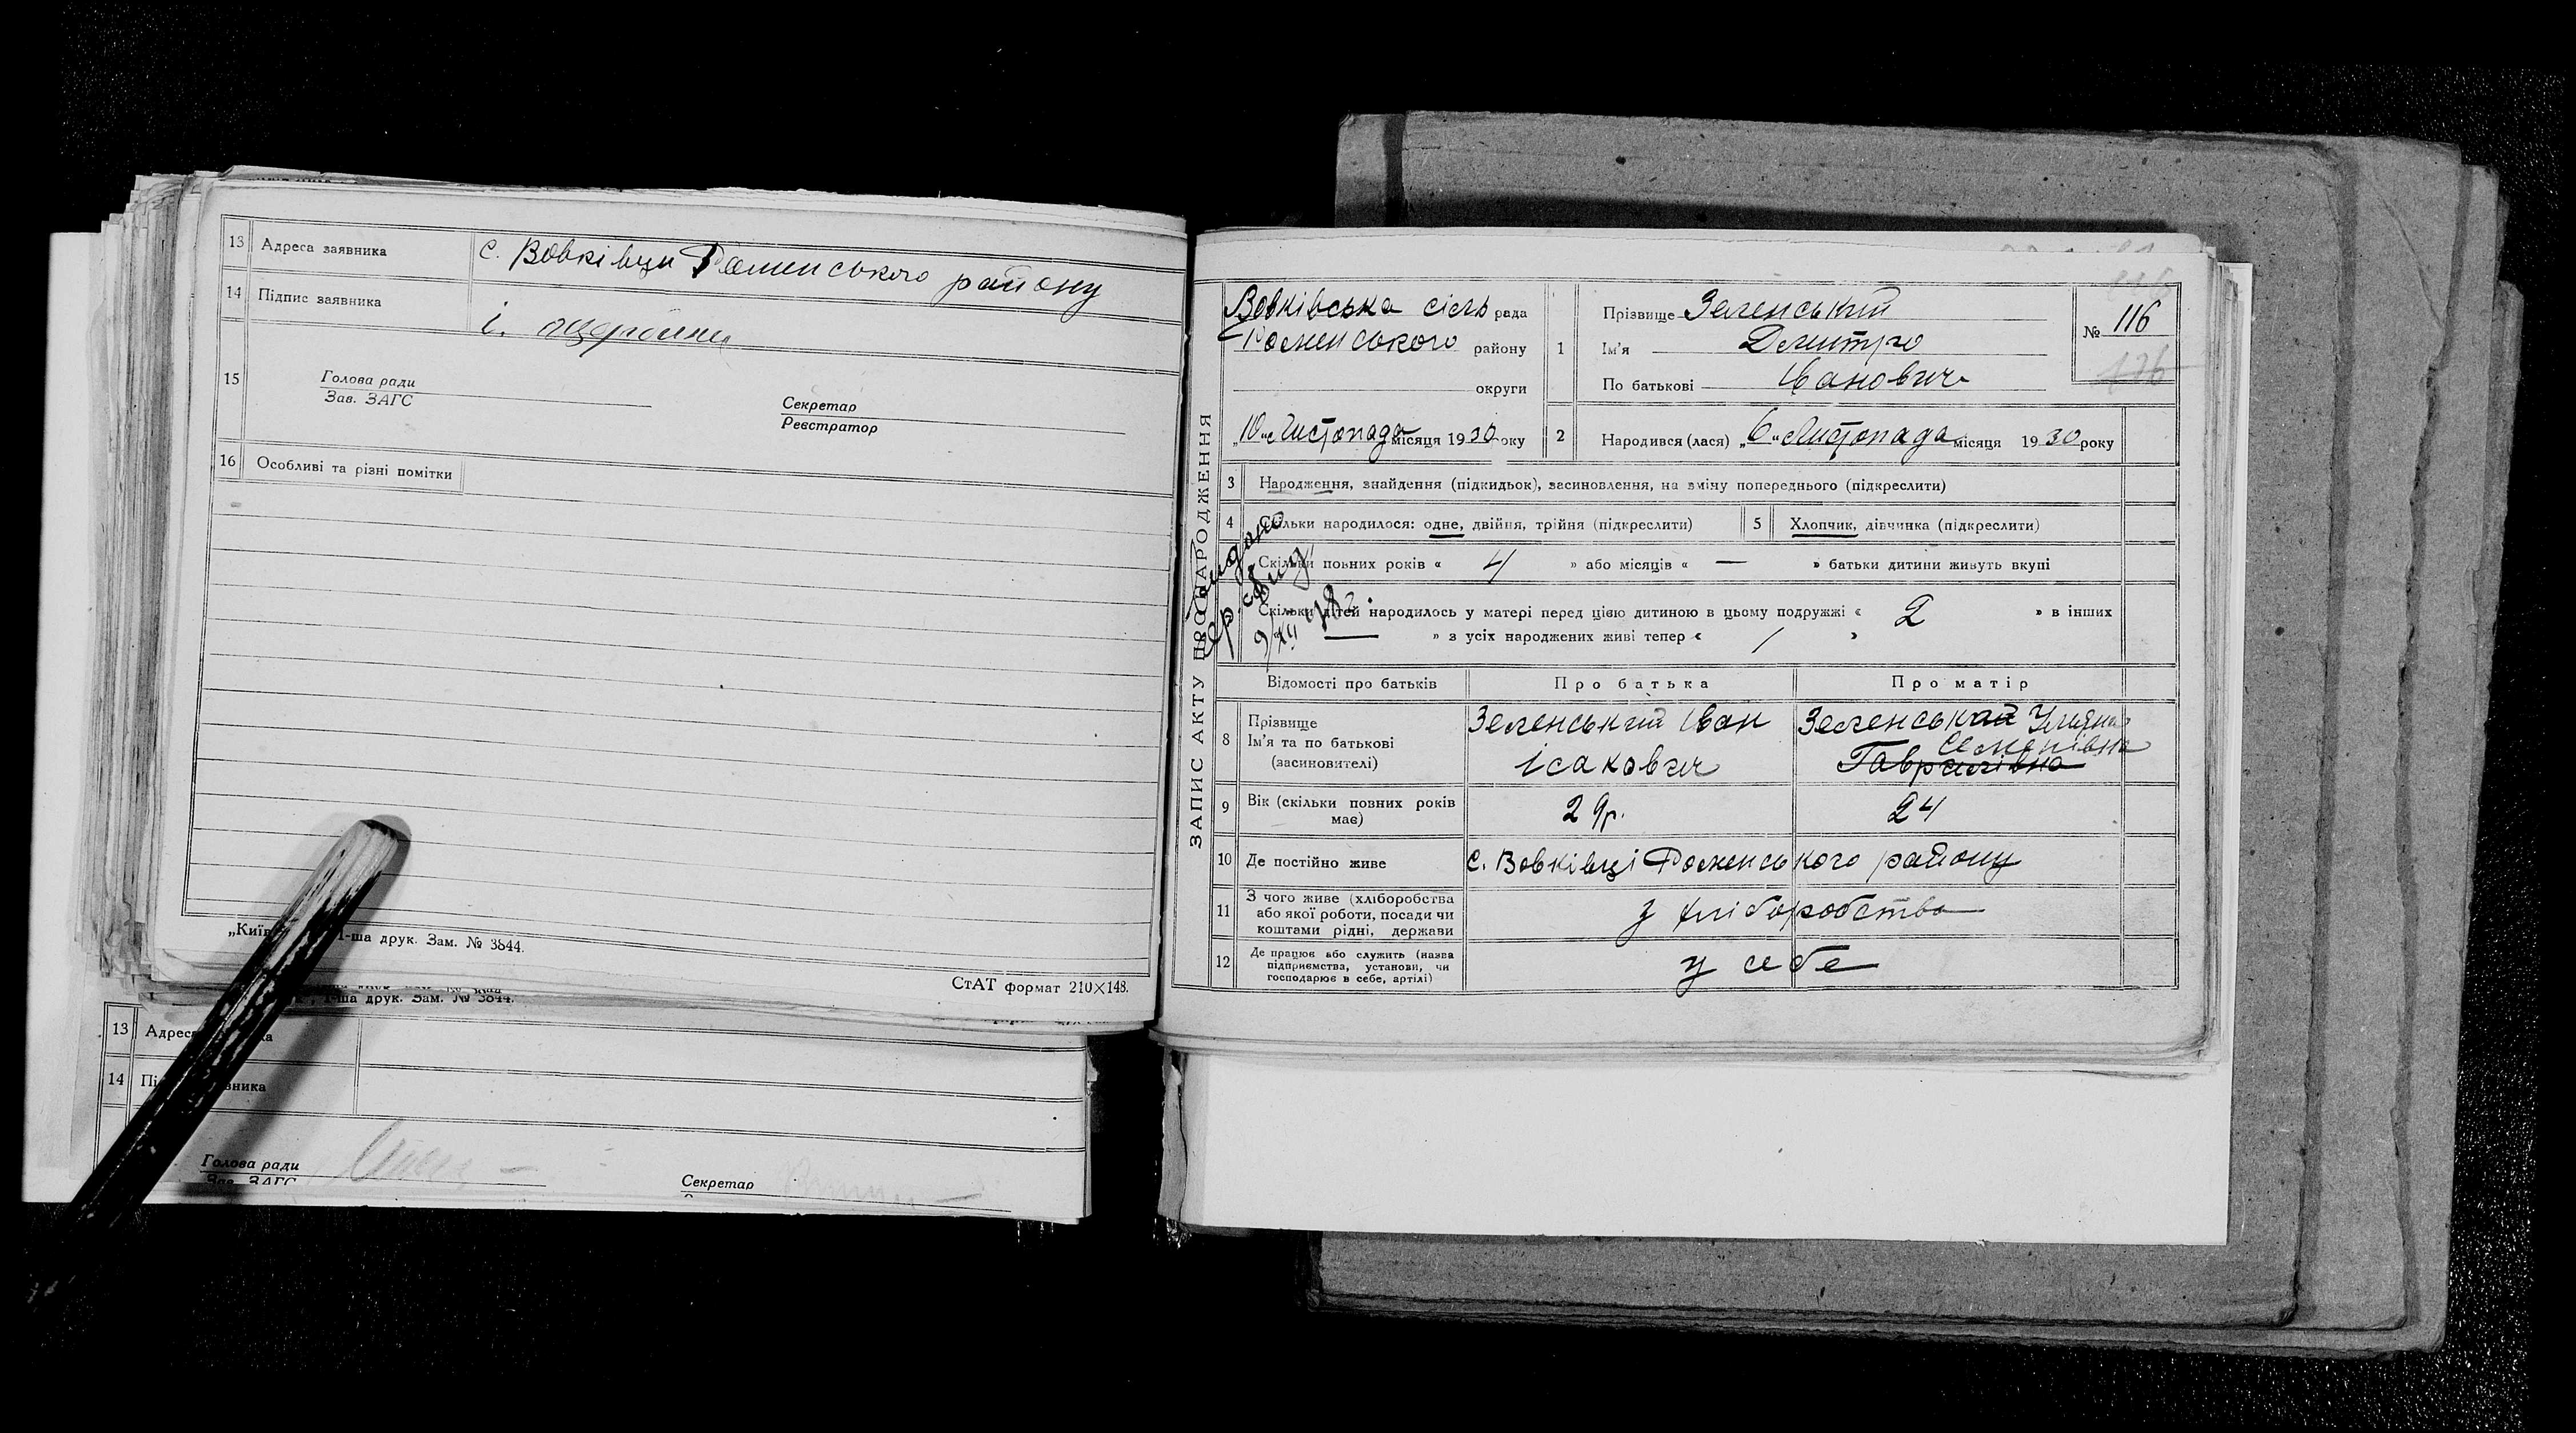 13 Адреса заявника с. Вовківци Роменського району
14 Підпис заявника і.
15 Голова ради
Зав. ЗАГС
Секретар
Реєстратор
16 Особливі та різні помітки
„Київ 1-ша друк. Зам. № 3844.
СтАТ формат 210×148.
1-ша друк. Зам. № 3844.
13 Адреса
14
Голова ради
Зав. ЗАГС
Секретар
ЗАПИС АКТУ ПРО НАРОДЖЕННЯ
Вовківська сіль рада
Роменського району
округи
„10„ Листопада місяця 1930 року
1 Прізвище Зеленський
Ім'я Дмитро
По батькові Іванович
№ 116
2 Народився (лася) „6„ Листопада місяця 1930 року
3 Народження, знайдення (підкидьок), засиновлення, на зміну попереднього (підкреслити)
4 Скільки народилося: одне, двійня, трійня (підкреслити) 5 Хлопчик, дівчинка (підкреслити)
Скільки повних років « 4 » або місяців « — » батьки дитини живуть вкупі
Скільки дітей народилось у матері перед цією дитиною в цьому подружжі « 2 » в інших
« — » з усіх народжених живі тепер « 1 »
Видано
Відомості про батьків Про батька Про матір
8 Прізвище
Ім'я та по батькові
(засиновителі)
Зеленський Іван
ісакович
Зеленська Уляна
Семенівна
Гаврилівна
9 Вік (скільки повних років
має) 29р. 24
10 Де постійно живе с. Вовківці Роменського району
11 З чого живе (хліборобства
або якої роботи, посади чи
коштами рідні, держави
з хліборобства
12 Де працює або служить (назва
підприємства, установи, чи
господарює в себе, артілі)
у себе